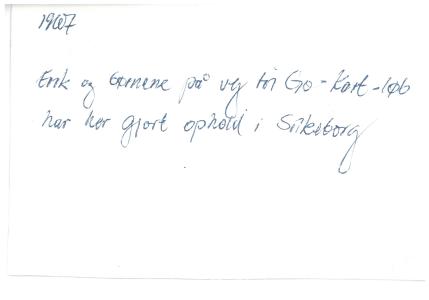 1967
Erik og børnene på vej til Go-Kart-løb
har her gjort ophold i Silkeborg